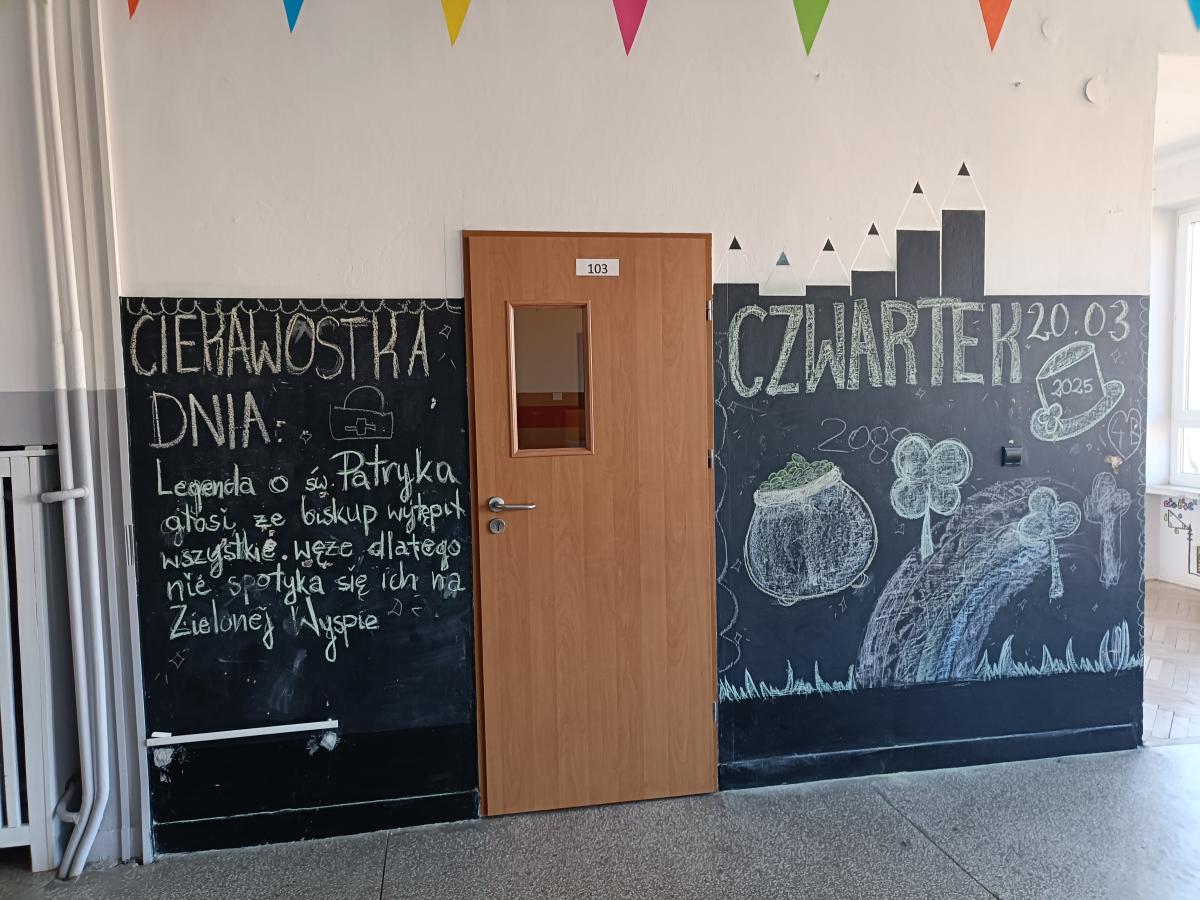 CIEKAWOSTKA
DNIA:
Legenda o św. Patryka
głosi, że biskup wytępił
wszystkie węże dlatego
nie spotyka się ich na
Zielonej Wyspie
103
CZWARTEK 20.03
2025